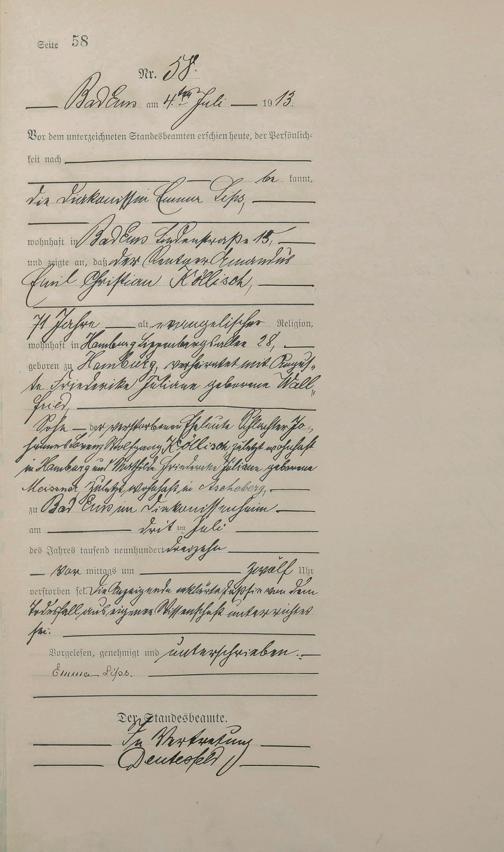 Seite 58
Nr. 58.
Bad Ems am 4ten Juli 1913.
Vor dem unterzeichneten Standesbeamten erschien heute, der Persönlich-
keit nach
be kannt,
die Diakonissin Emma Lips,
wohnhaft in Bad Ems Lindenstraße 15,
und zeigte an, daß der Rentner Amandus
Emil Christian Köllisch,
71 Jahre alt, evangelischer Religion,
wohnhaft in Hamburg 28,
geboren zu Hamburg, verheiratet mit Augus-
te Friederike Juliane geborene Wall-
fried,
Sohn der verstorbenen Eheleute Schlachter Jo-
Wolfgang Köllisch zuletzt wohnhaft
in Hamburg und Friederike Juliane geborene
zuletzt wohnhaft in
zu Bad Ems im Diakonissenheim
am dritten Juli
des Jahres tausend neunhundert dreizehn
Vor mittags um zwölf Uhr
verstorben sei. Die Anzeigende erklärte, daß sie von dem
Todesfall aus eigener Wissenschaft unterrichtet
sei.
Vorgelesen, genehmigt und unterschrieben.
Emma Lips.
Der Standesbeamte.
In Vertretung